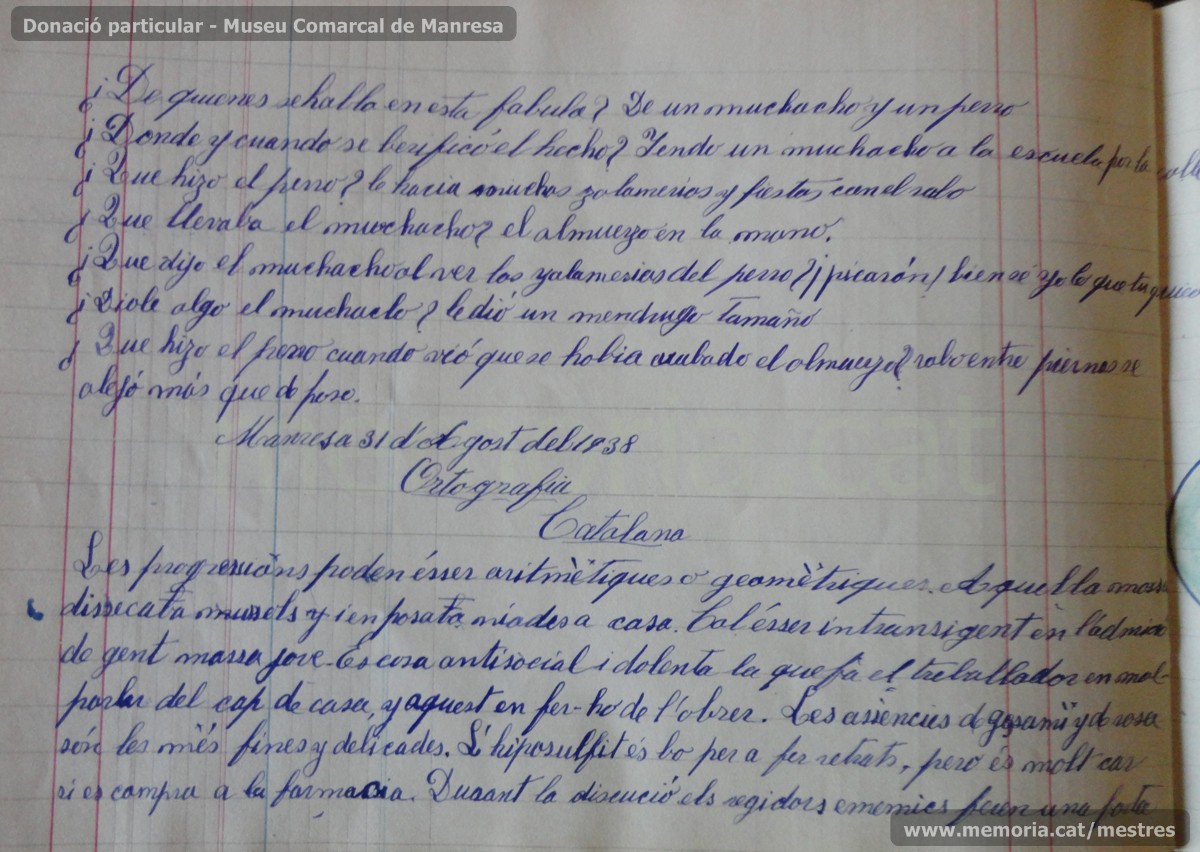 Donació particular - Museu Comarcal de Manresa
¿De quienes sehalla en esta fabula? De un muchacho y un perro
¿Donde y cuando se berificó el hecho? Yendo un muchacho a la escuela por la calle
¿Que hizo el perro? le hacia muchas zalamerias y fiestas con el rabo
¿Que llevaba el muchacho? el almuerzo en la mano.
¿Que dijo el muchacho al ver las zalamerias del perro? ¡picarón! bien sé yo lo que tu
¿Diole algo el muchacho? le dió un mendrugo tamaño
¿Que hizo el perro cuando vió que se habia acabado el almuerzo? rabo entre piernas se
alejó más que de paso.
Manresa 31 d'Agost del 1938
Ortografia
Catalana
Les progressións poden ésser aritmètiques o geomètriques. Aquell a
dissecata mussels y i en posata a casa. Cal ésser intransigent en l'admisió
de gent massa jove. Es cosa antisocial i dolenta la que fa el treballador en mal-
parlar del cap de casa, y aquest en fer-ho de l'obrer. Les assencies de gesamí y de rosa
són les més fines y delicades. L'hiposulfit és bo per a fer retrats, però és molt car
si es compra a la farmacia. Durant la discució els regidors ememics feien una forta
www.memoria.cat/mestres